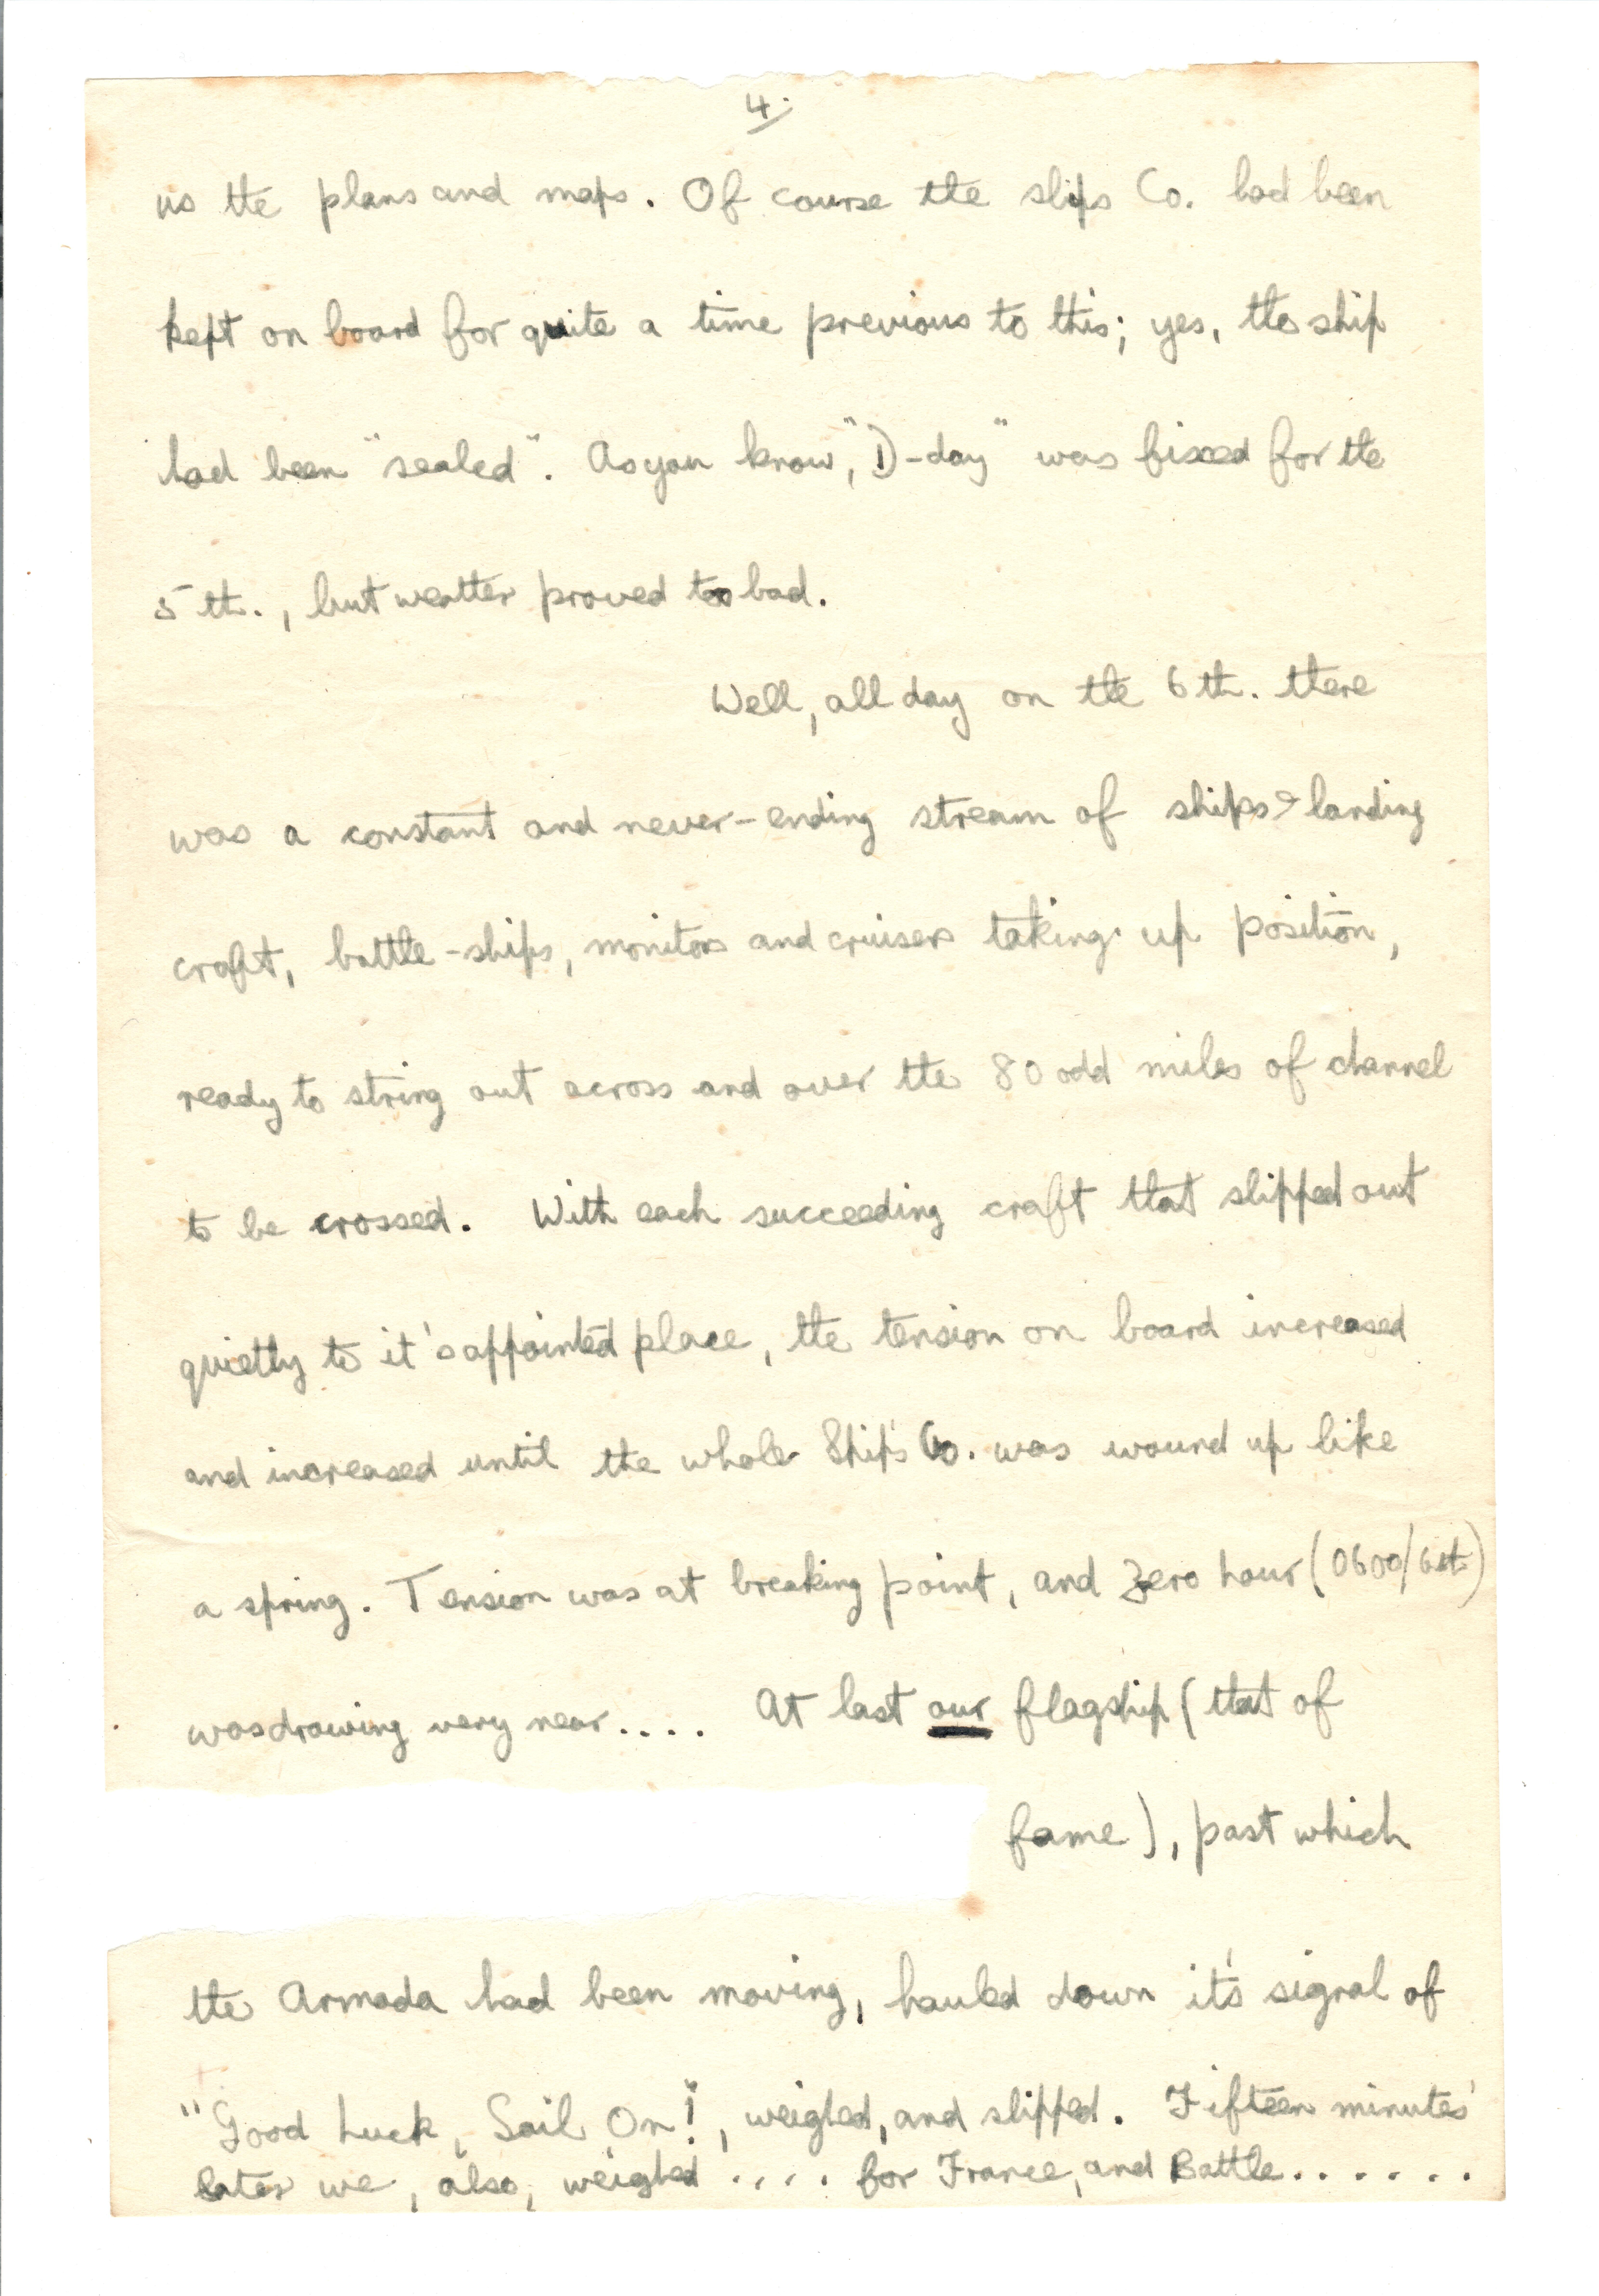 4.
us the plans and maps. Of course the ships Co. had been
kept on board for quite a time previous to this; yes, the ship
had been "sealed". As you know, "D-day" was fixed for the
5th., but weather proved too bad.
Well, all day on the 6th. there
was a constant and never-ending stream of ships & landing
craft, battle-ships, monitors and cruisers taking up position,
ready to string out across and over the 80 odd miles of channel
to be crossed. With each succeeding craft that slipped out
quietly to it's appointed place, the tension on board increased
and increased until the whole Ship's Co. was wound up like
a spring. Tension was at breaking point, and Zero hour (0600/6th)
was drawing very near.... At last our flagship (that of
fame), past which
the Armada had been moving, hauled down it's signal of
"Good Luck, Sail On!", weighed, and slipped. Fifteen minutes'
later we, also, weighed .... for France, and Battle.......